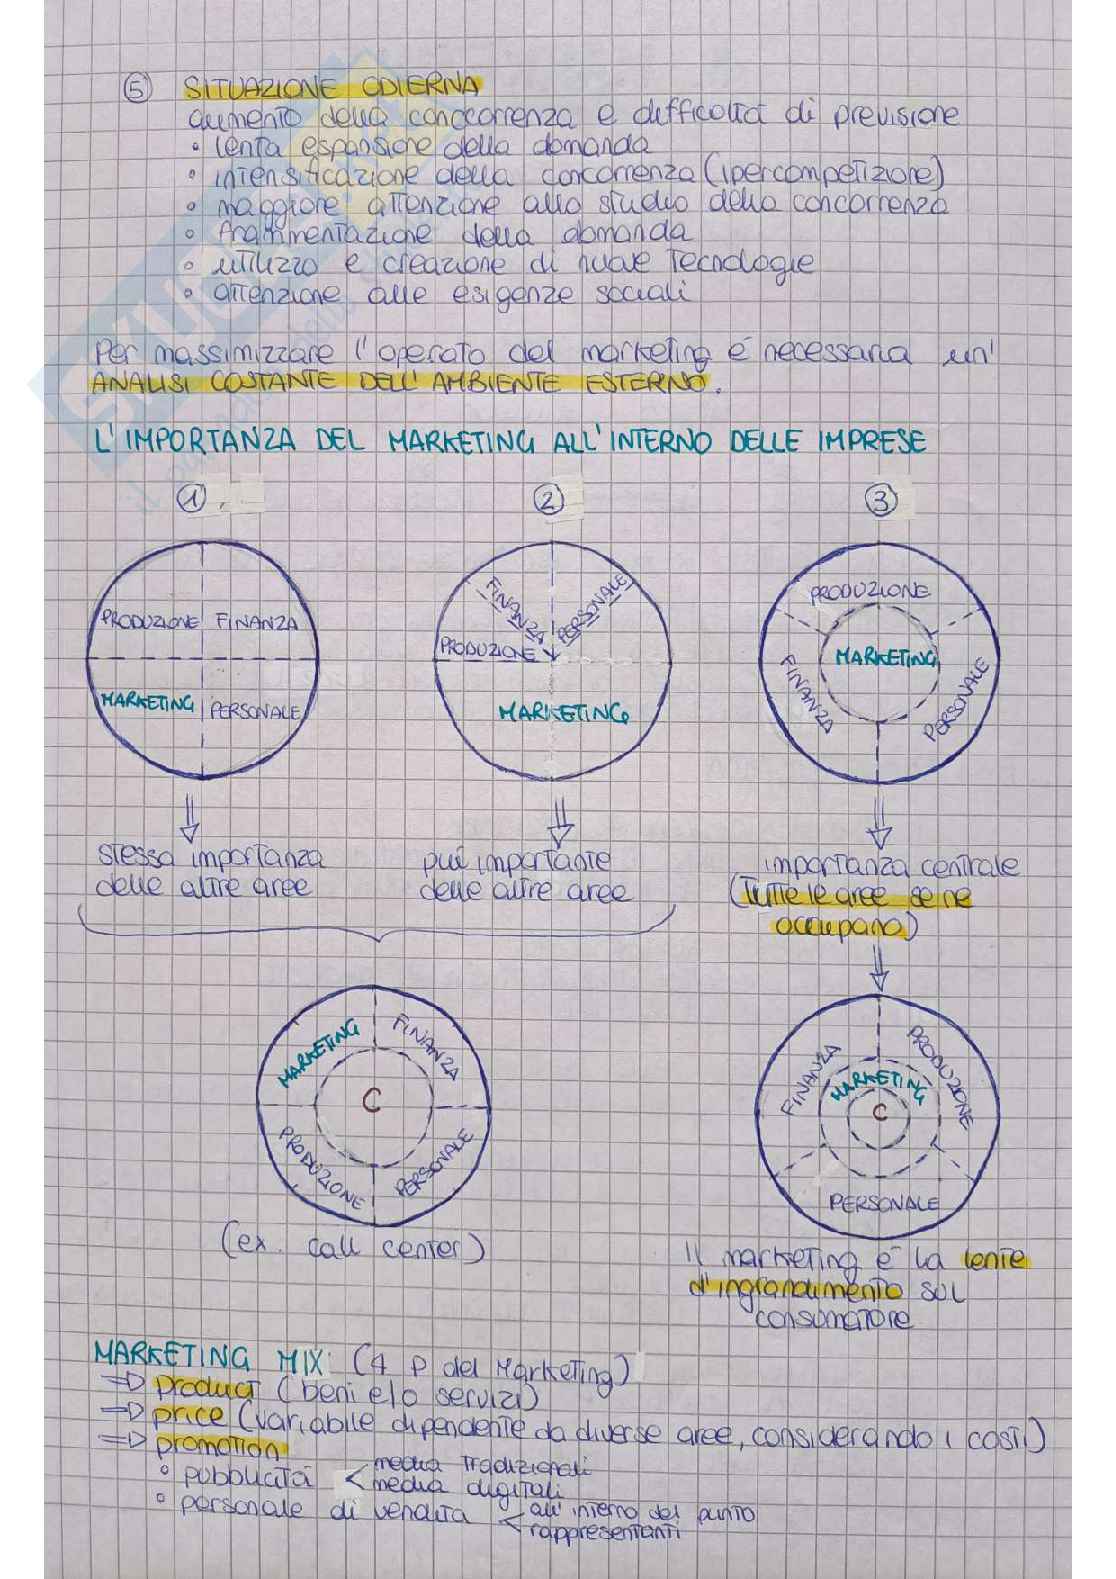 ⑤ SITUAZIONE ODIERNA
aumento della concorrenza e difficoltà di previsione
• lenta espansione della domanda
• intensificazione della concorrenza (ipercompetizione)
• maggiore attenzione allo studio della concorrenza
• frammentazione della domanda
• utilizzo e creazione di nuove tecnologie
• attenzione alle esigenze sociali
Per massimizzare l'operato del marketing è necessaria un'
ANALISI COSTANTE DELL'AMBIENTE ESTERNO.
L'IMPORTANZA DEL MARKETING ALL'INTERNO DELLE IMPRESE
① ② ③
PRODUZIONE FINANZA
MARKETING PERSONALE
FINANZA PERSONALE
PRODUZIONE
MARKETING
PRODUZIONE
MARKETING
FINANZA PERSONALE
stessa importanza
delle altre aree
più importante
delle altre aree
importanza centrale
(tutte le aree se ne
occupano)
MARKETING FINANZA
C
PRODUZIONE PERSONALE
(ex. call center)
FINANZA PRODUZIONE
MARKETING
C
PERSONALE
Il marketing è la lente
d'ingrandimento sul
consumatore
MARKETING MIX: (4 P del Marketing)
⇒ product (beni e/o servizi)
⇒ price (variabile dipendente da diverse aree, considerando i costi)
⇒ promotion
• pubblicità < media tradizionali
media digitali
• personale di vendita < all'interno del punto
rappresentanti